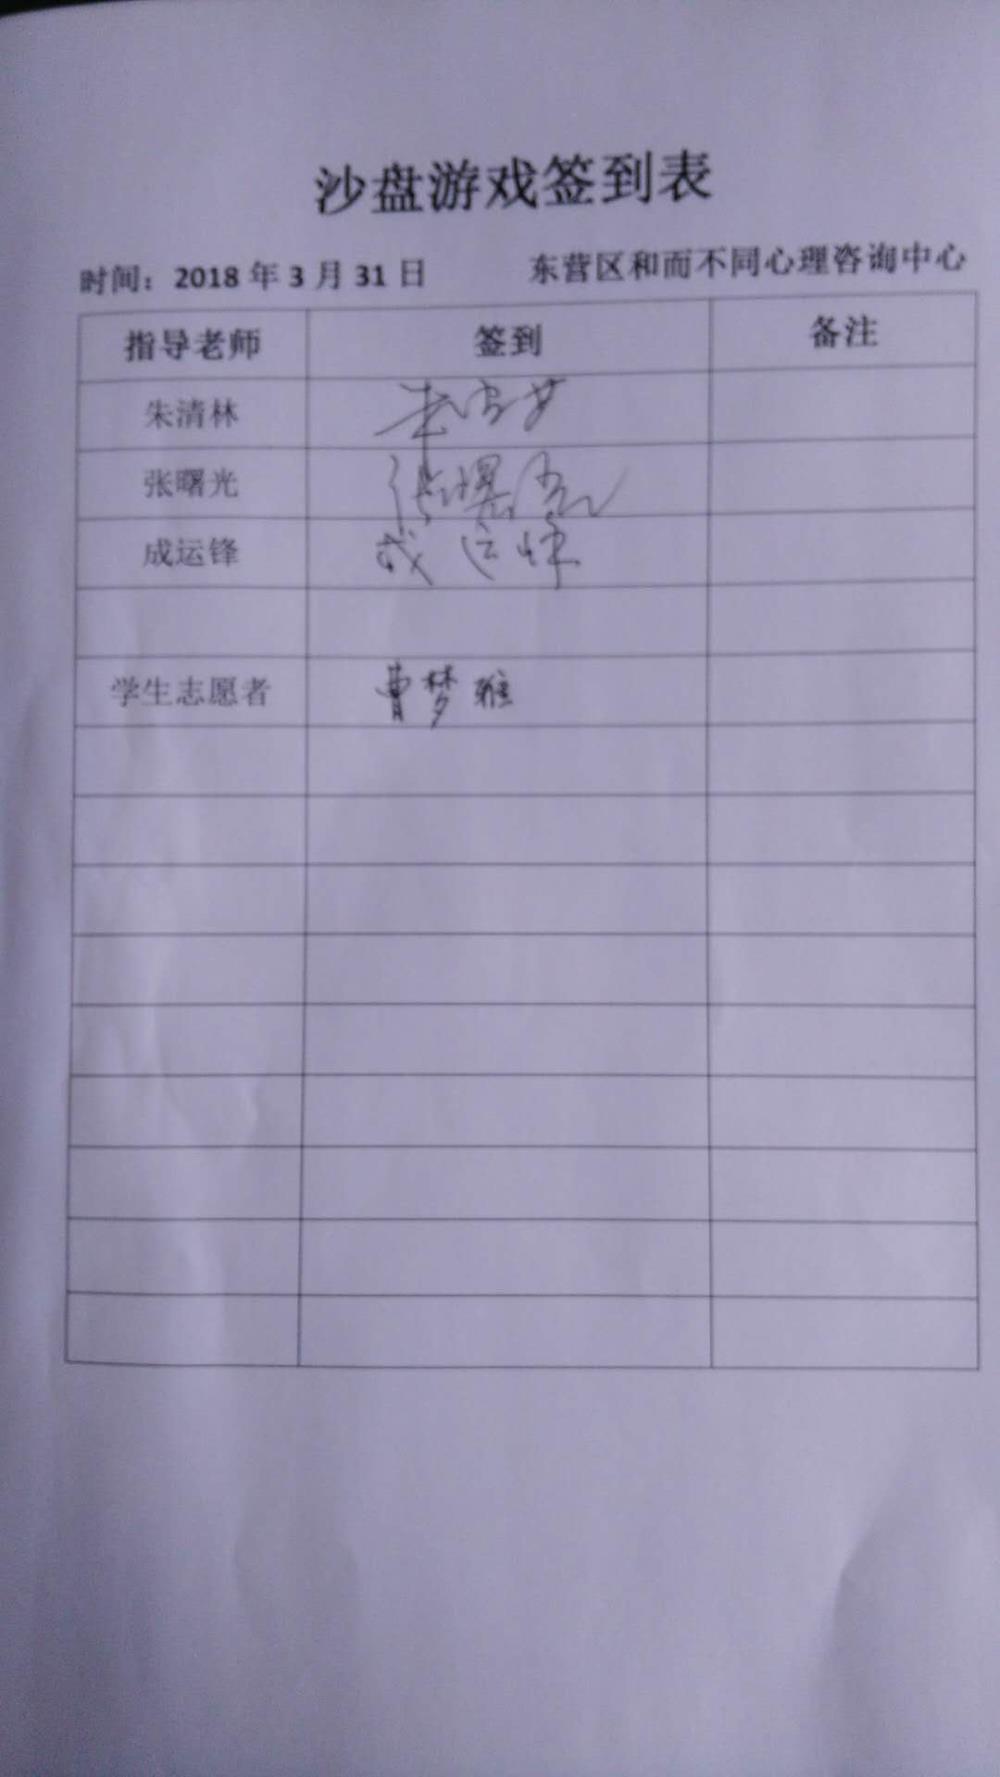 沙盘游戏签到表
时间：2018 年 3 月 31 日 东营区和而不同心理咨询中心
指导老师 签到 备注
朱清林
张曙光 张曙光
成运锋 成运锋
学生志愿者 曹梦雅